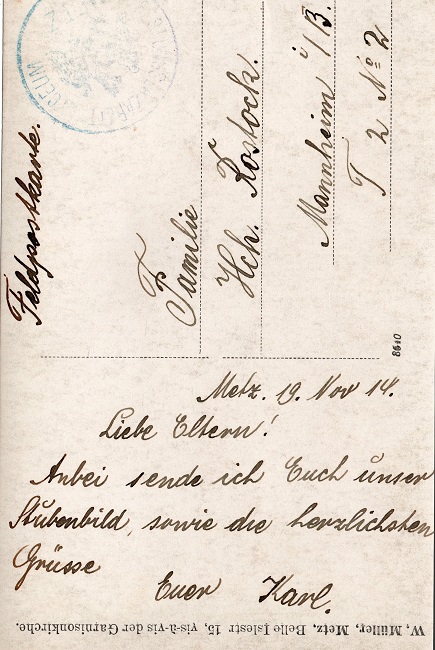 Feldpostkarte.
Familie
Hch. Rostock.
Mannheim i/B.
T 2 No 2
8610
Metz. 19. Nov 14.
Liebe Eltern!
Anbei sende ich Euch unser
Stubenbild, sowie die herzlichsten
Grüsse
Euer Karl.
W. Müller, Metz, Belle Islestr 15, vis-à-vis der Garnisonkirche.